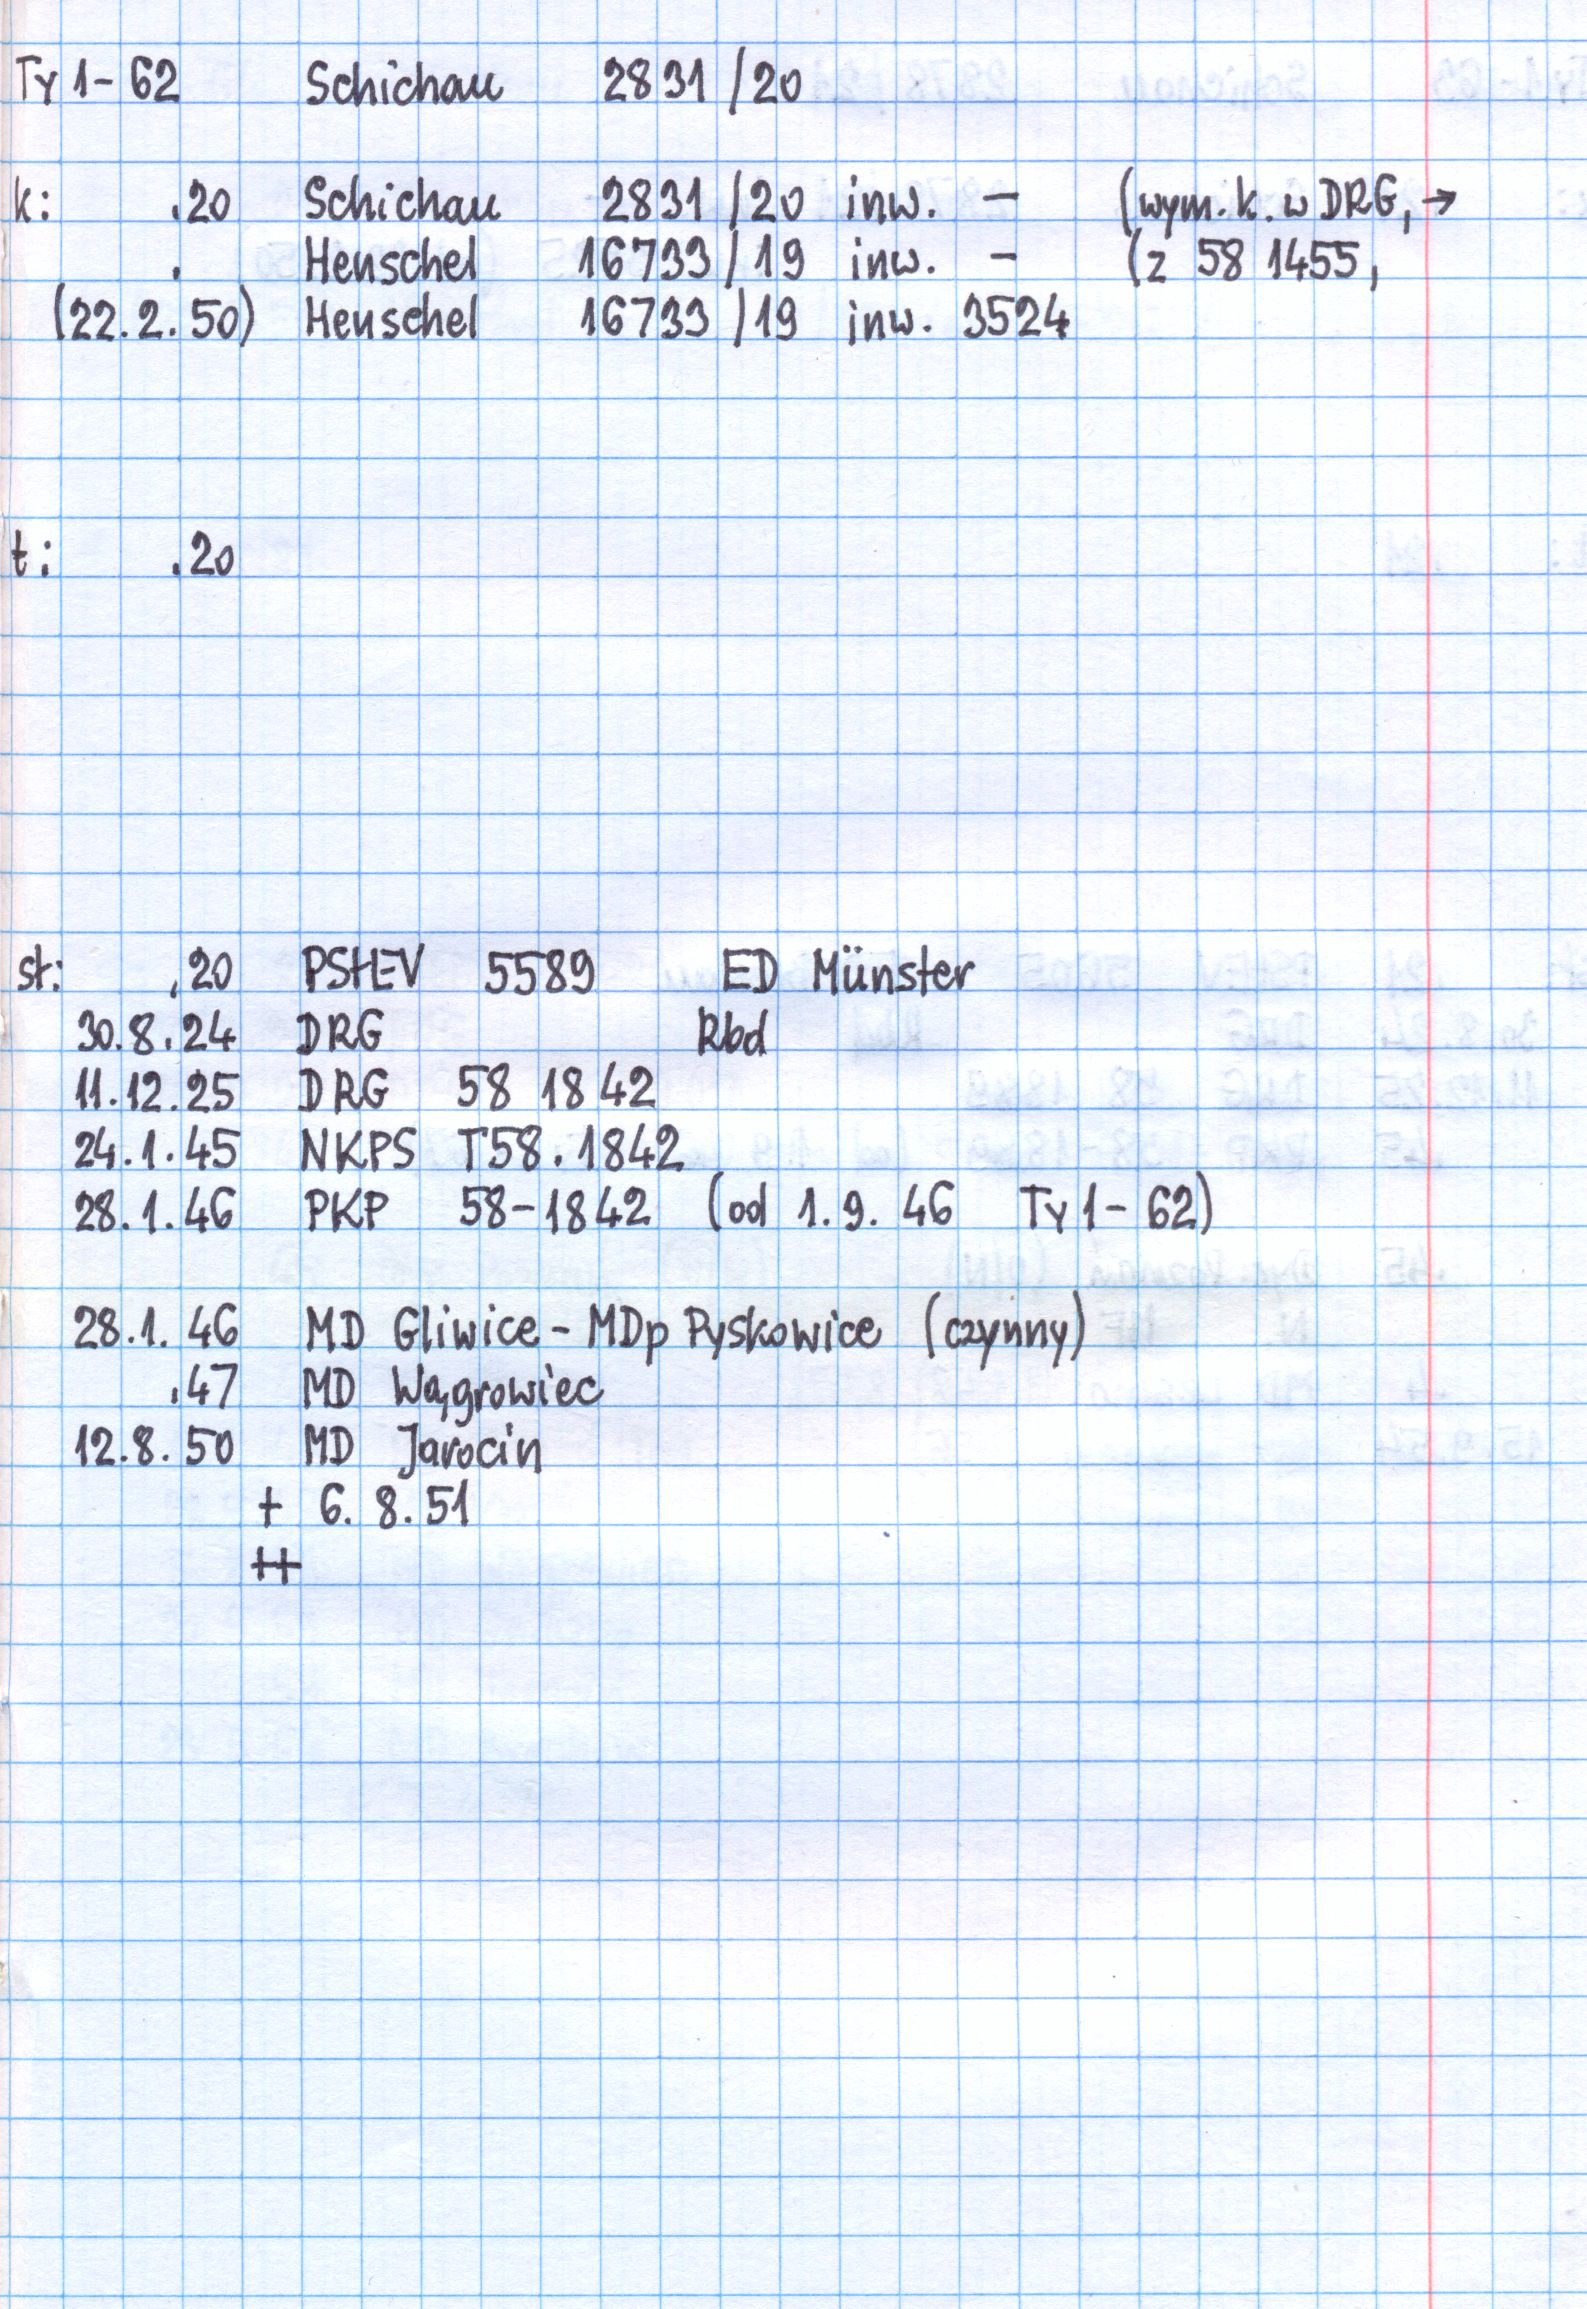 Ty 1-62 Schichau 2831/20
k: .20 Schichau 2831/20 inw. - (wym. k. w DRG, →
. Henschel 16733/19 inw. - (z 58 1455,
(22.2.50) Henschel 16733/19 inw. 3524
t: .20
st: .20 PStEV 5589 ED Münster
30.8.24 DRG Rbd
11.12.25 DRG 58 1842
24.1.45 NKPS T58.1842
28.1.46 PKP 58-1842 (od 1.9.46 Ty 1-62)
28.1.46 MD Gliwice - MDp Pyskowice (czynny)
.47 MD Wągrowiec
12.8.50 MD Jarocin
+ 6.8.51
++